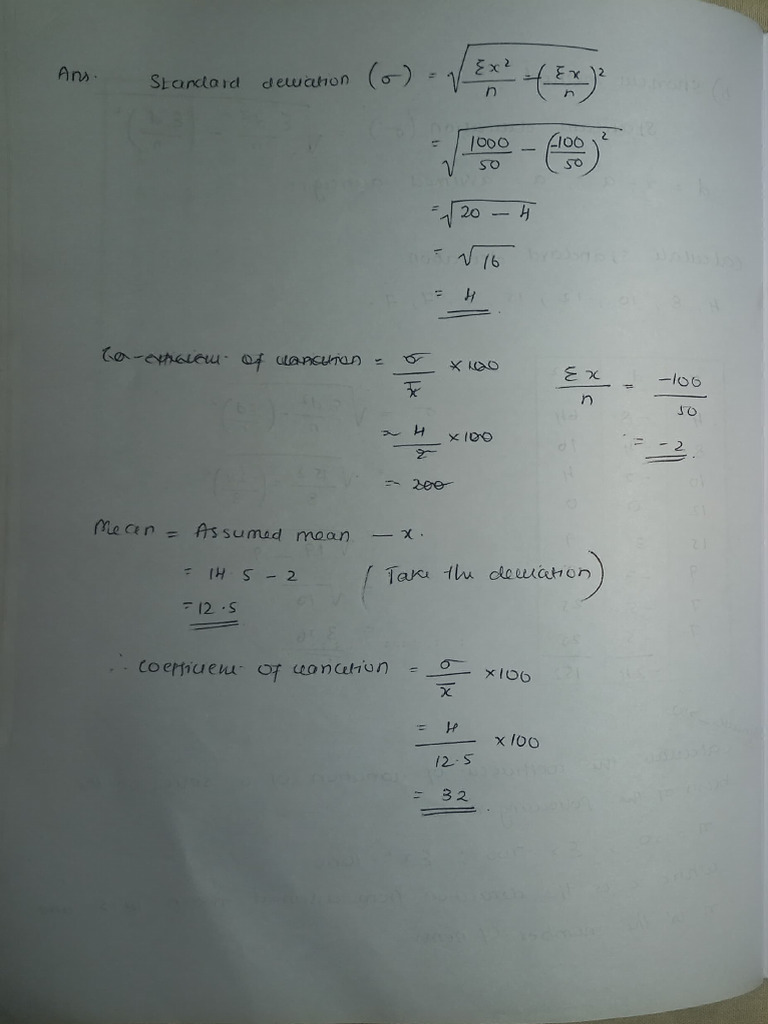 Ans. Standard deviation (σ) = √(Σx²/n - (Σx/n)²)
= √(1000/50 - (-100/50)²)
= √20 - 4
= √16
= 4
Co-efficient of variation = σ/x̄ × 100
= 4/2 × 100
= 200
Σx/n = -100/50
= -2.
Mean = Assumed mean - x.
= 14.5 - 2 (Take the deviation)
= 12.5
∴ coefficient of variation = σ/x̄ × 100
= 4/12.5 × 100
= 32.